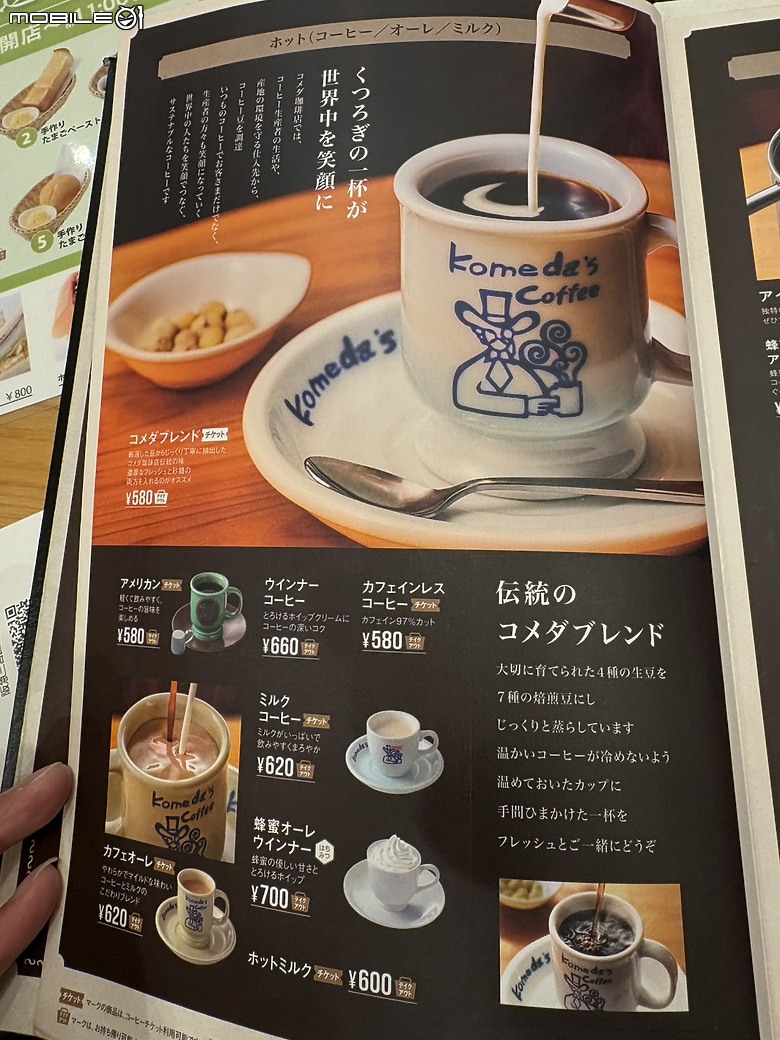 MOBILE01
開店〜
2 手作り
たまごペースト
5 手作り
たまご
¥800
ホット（コーヒー／オーレ／ミルク）
くつろぎの一杯が
世界中を笑顔に
コメダ珈琲店では、
コーヒー生産者の生活や、
産地の環境を守る仕入先から、
コーヒー豆を調達
いつものコーヒーでお客さまだけでなく、
生産者の方々も笑顔になっていく
世界中の人たちを笑顔でつなぐ、
サステナブルなコーヒーです
Komeda's
Coffee
Komeda's
コメダブレンド チケット
厳選した豆からじっくり丁寧に抽出した
コメダ珈琲店伝統の味
濃厚なフレッシュと8割の
両方を入れるのがオススメ
¥580 テイクアウト
アメリカン チケット
軽くて飲みやすく、
コーヒーの旨味を
楽しめる
¥580 テイクアウト
ウインナー
コーヒー
とろけるホイップクリームに
コーヒーの深いコク
¥660 テイクアウト
カフェインレス
コーヒー チケット
カフェイン97％カット
¥580 テイクアウト
ミルク
コーヒー チケット
ミルクがいっぱいで
飲みやすくまろやか
¥620 テイクアウト
Komeda's
Coffee
カフェオーレ チケット
やわらかでマイルドな味わい
コーヒーとミルクの
こだわりブレンド
¥620 テイクアウト
蜂蜜オーレ
ウインナー はちみつ
蜂蜜の優しい甘さと
とろけるホイップ
¥700 テイクアウト
ホットミルク チケット ¥600 テイクアウト
伝統の
コメダブレンド
大切に育てられた4種の生豆を
7種の焙煎豆にし
じっくりと蒸らしています
温かいコーヒーが冷めないよう
温めておいたカップに
手間ひまかけた一杯を
フレッシュとご一緒にどうぞ
Komeda's
Komeda's
Coffee
チケット マークの商品は、コーヒーチケット利用可能
テイクアウト マークは、お持ち帰り可能